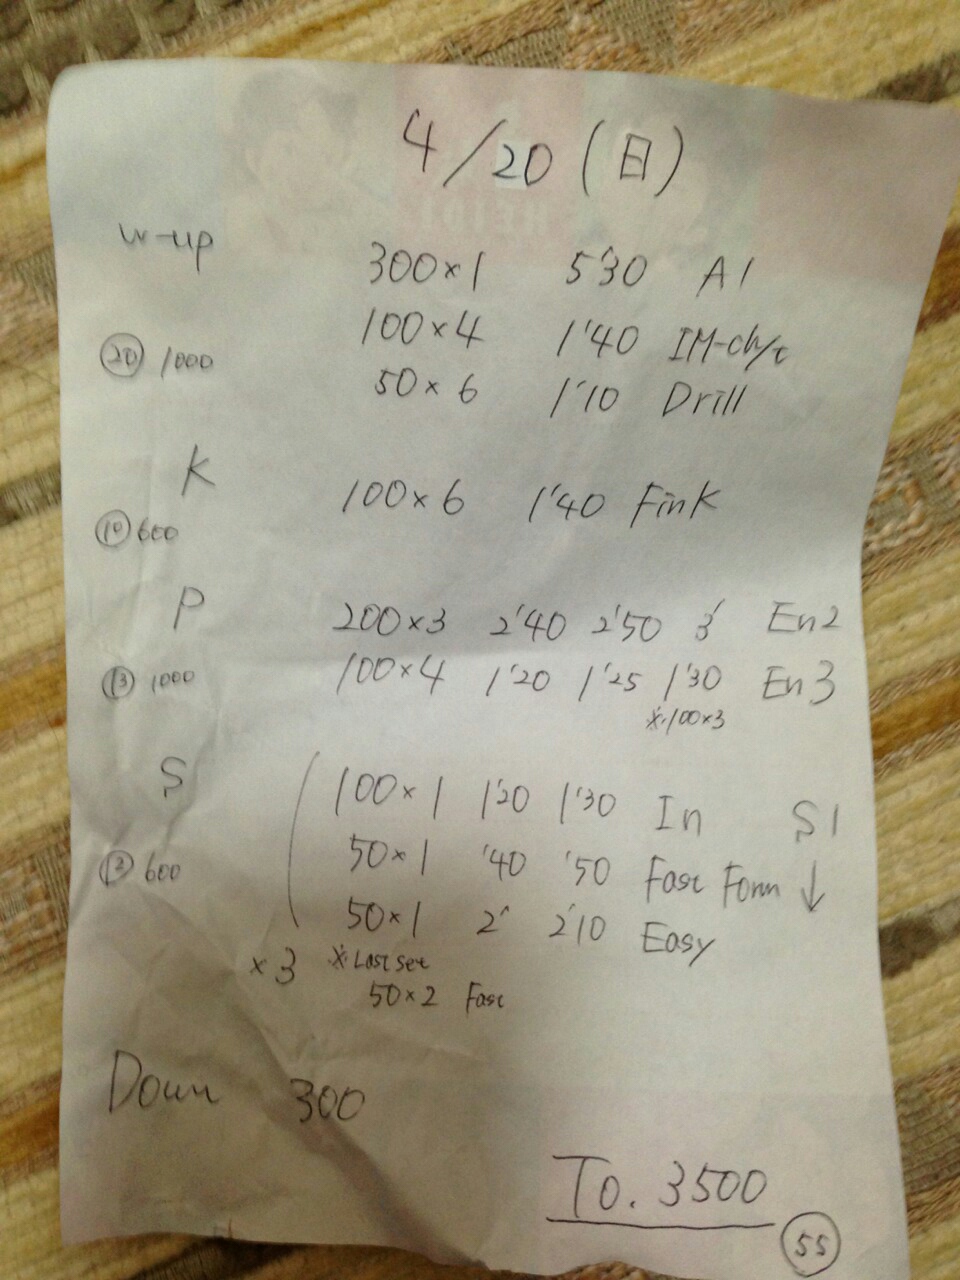 4/20 (日)
W-up
300×1 5'30 A1
100×4 1'40 IM-ch/t
⑳ 1000
50×6 1'10 Drill
K
100×6 1'40 FinK
⑩ 600
P
200×3 2'40 2'50 3' En2
⑬ 1000
100×4 1'20 1'25 1'30 En3
※100×3
S
100×1 1'20 1'30 In S1
600
50×1 '40 '50 Fast Form ↓
50×1 2' 2'10 Easy
×3 ※Last set
50×2 Fast
Down 300
To. 3500
55
HEIDI